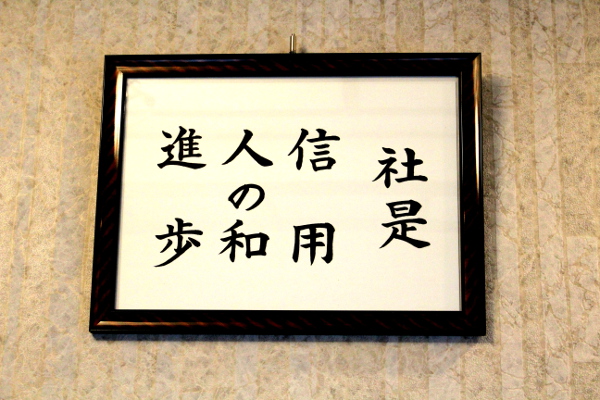 社是
信用
人の和
進歩